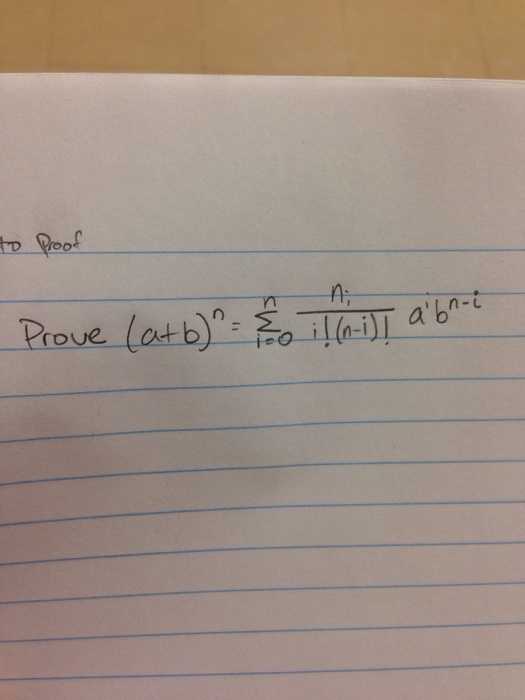 to Proof
Prove (a+b)^n = \sum_{i=0}^{n} \frac{n_i}{i!(n-i)!} a^i b^{n-i}